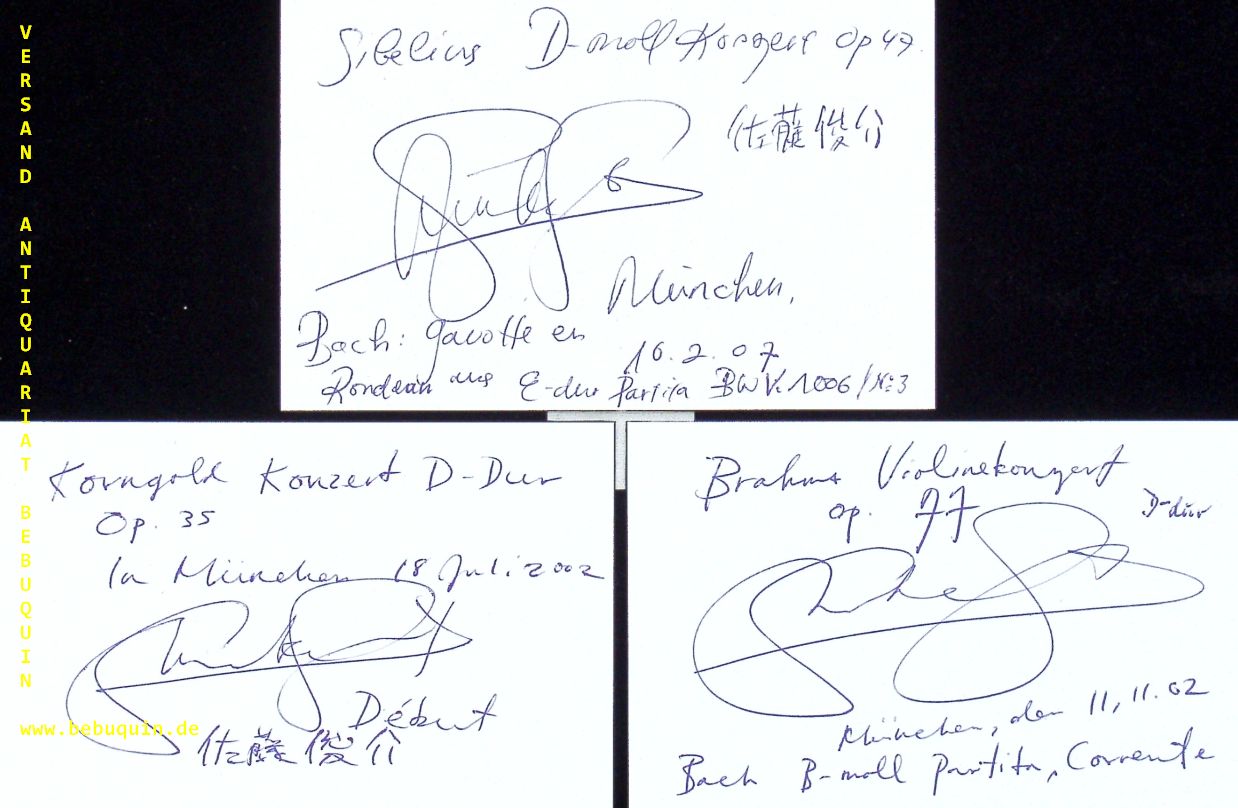 VERSAND ANTIQUARIAT BEBUQUIN
www.bebuquin.de
Sibelius D-moll Konzert Op 47.
佐藤俊介
München,
16.2.07
Bach: Gavotte en
Rondeau aus E-dur Partita BWV.1006/No:3
Korngold Konzert D-Dur
Op. 35
In München 18 Juli 2002
Début
佐藤俊介
Brahms Violinekonzert
op. 77 D-dur
München, den 11,11.02
Bach B-moll Partita, Corrente